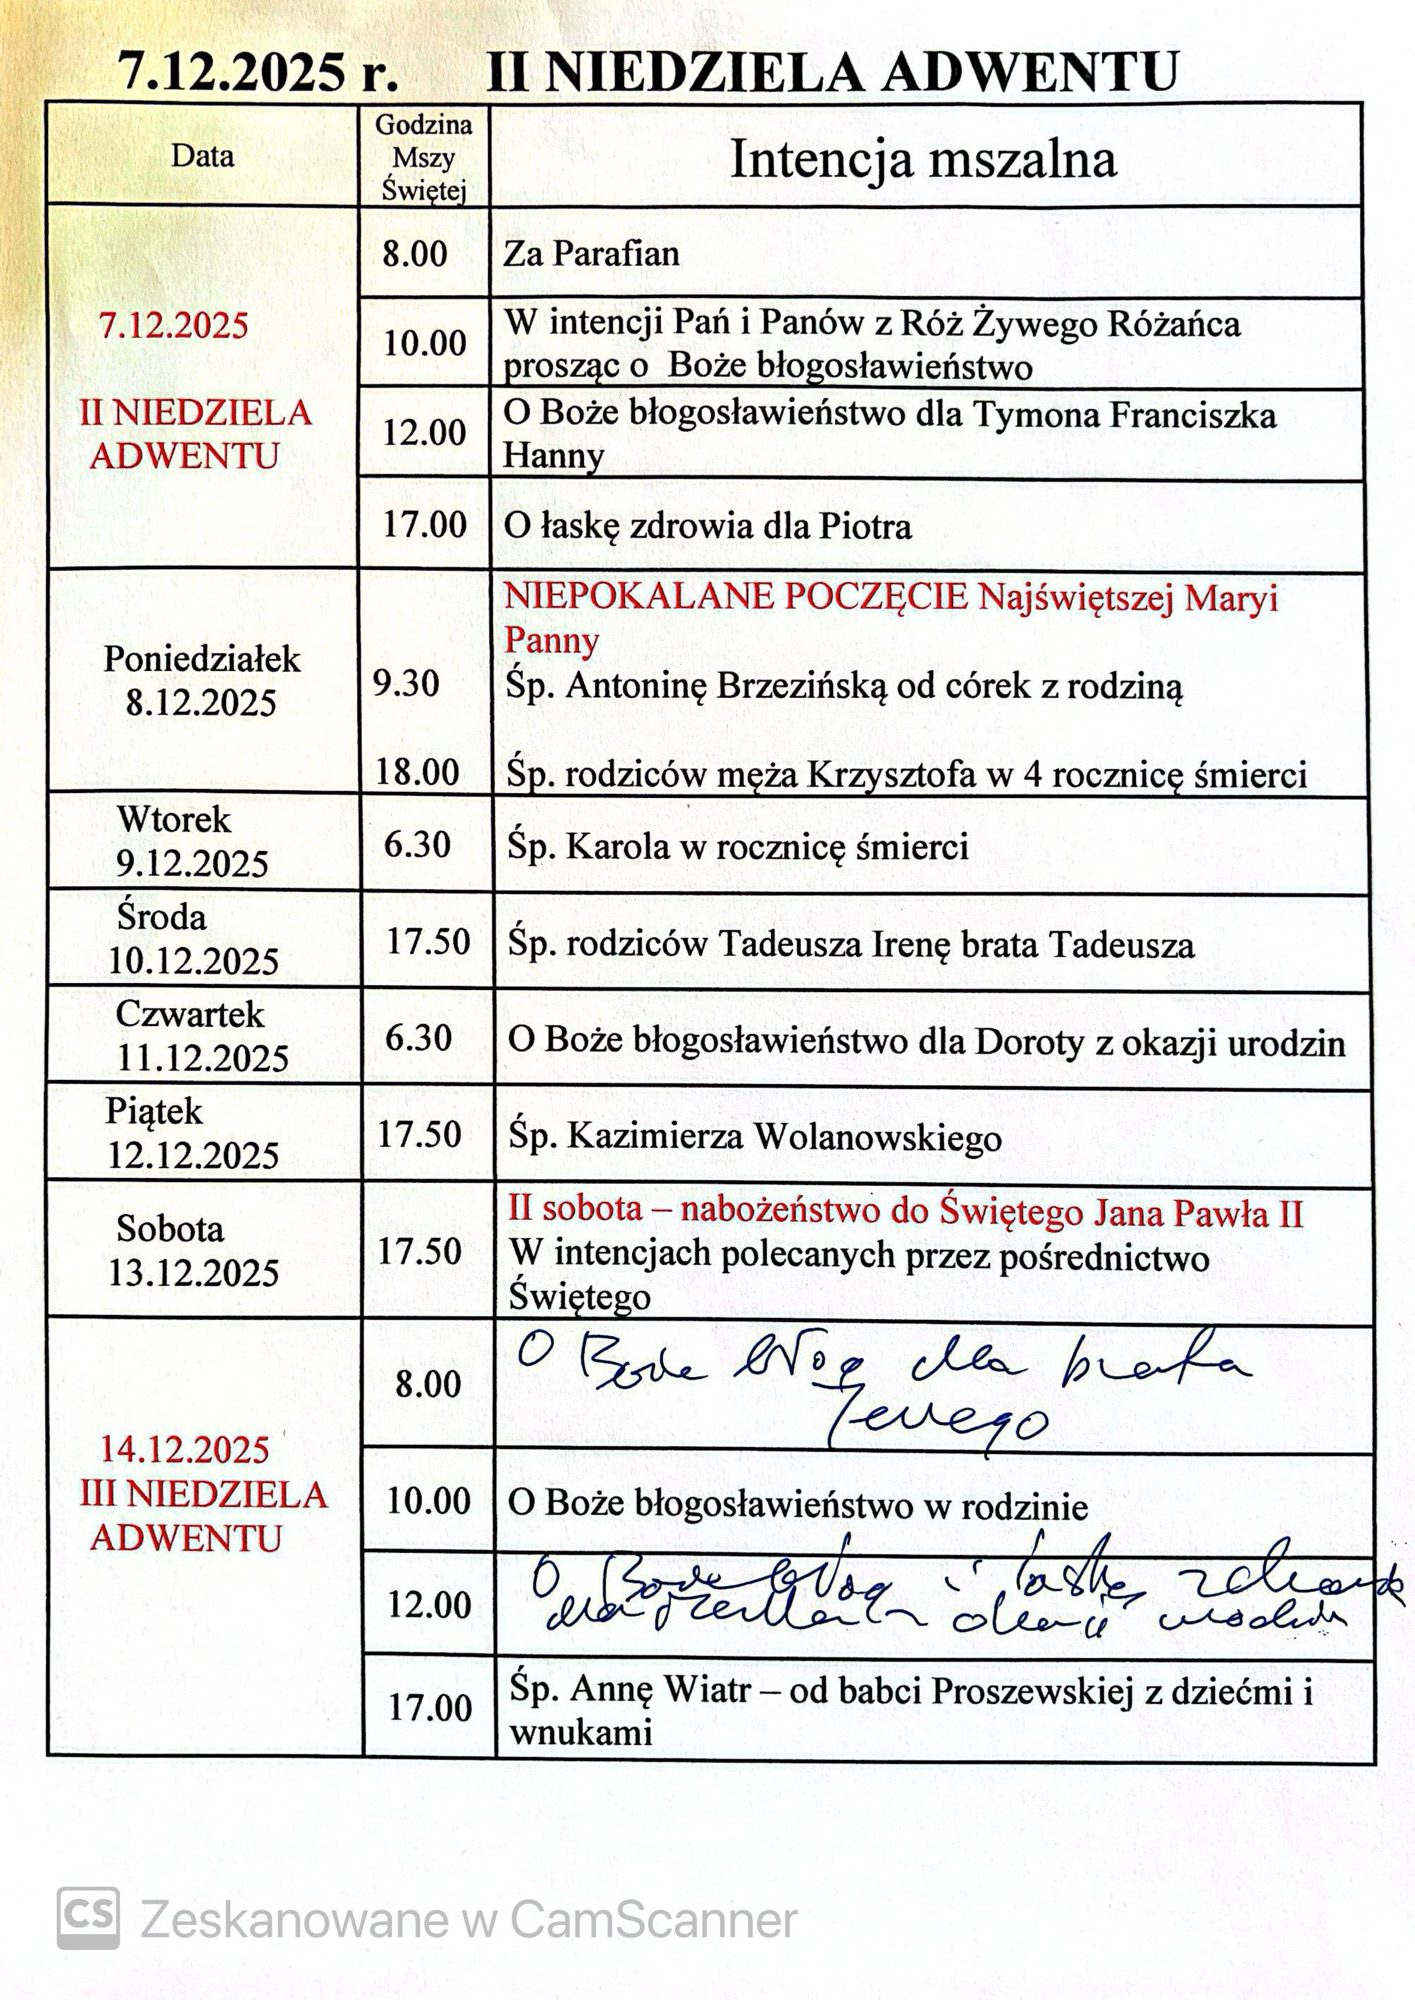 7.12.2025 r. II NIEDZIELA ADWENTU
Data
Godzina
Mszy
Świętej
Intencja mszalna
7.12.2025
II NIEDZIELA
ADWENTU
8.00
Za Parafian
10.00
W intencji Pań i Panów z Róż Żywego Różańca
prosząc o Boże błogosławieństwo
12.00
O Boże błogosławieństwo dla Tymona Franciszka
Hanny
17.00
O łaskę zdrowia dla Piotra
Poniedziałek
8.12.2025
NIEPOKALANE POCZĘCIE Najświętszej Maryi
Panny
9.30
Śp. Antoninę Brzezińską od córek z rodziną
18.00
Śp. rodziców męża Krzysztofa w 4 rocznicę śmierci
Wtorek
9.12.2025
6.30
Śp. Karola w rocznicę śmierci
Środa
10.12.2025
17.50
Śp. rodziców Tadeusza Irenę brata Tadeusza
Czwartek
11.12.2025
6.30
O Boże błogosławieństwo dla Doroty z okazji urodzin
Piątek
12.12.2025
17.50
Śp. Kazimierza Wolanowskiego
Sobota
13.12.2025
17.50
II sobota – nabożeństwo do Świętego Jana Pawła II
W intencjach polecanych przez pośrednictwo
Świętego
14.12.2025
III NIEDZIELA
ADWENTU
8.00
O Boże błog dla brata
10.00
O Boże błogosławieństwo w rodzinie
12.00
O Boże błog i łaskę
dla okazji urodzin
17.00
Śp. Annę Wiatr – od babci Proszewskiej z dziećmi i
wnukami
CS Zeskanowane w CamScanner